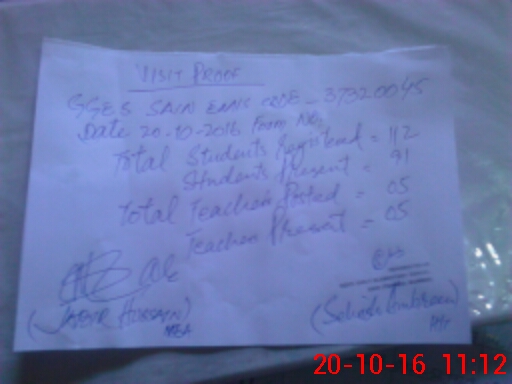 VISIT PROOF
GGES SAIN EMIS CODE - 37320045
Date 20-10-2016 Form No
Total Students Registered = 112
Students Present = 91
Total Teacher Posted = 05
Teacher Present = 05
(JABIR HUSSAIN)
MEA
20-10-16 11:12